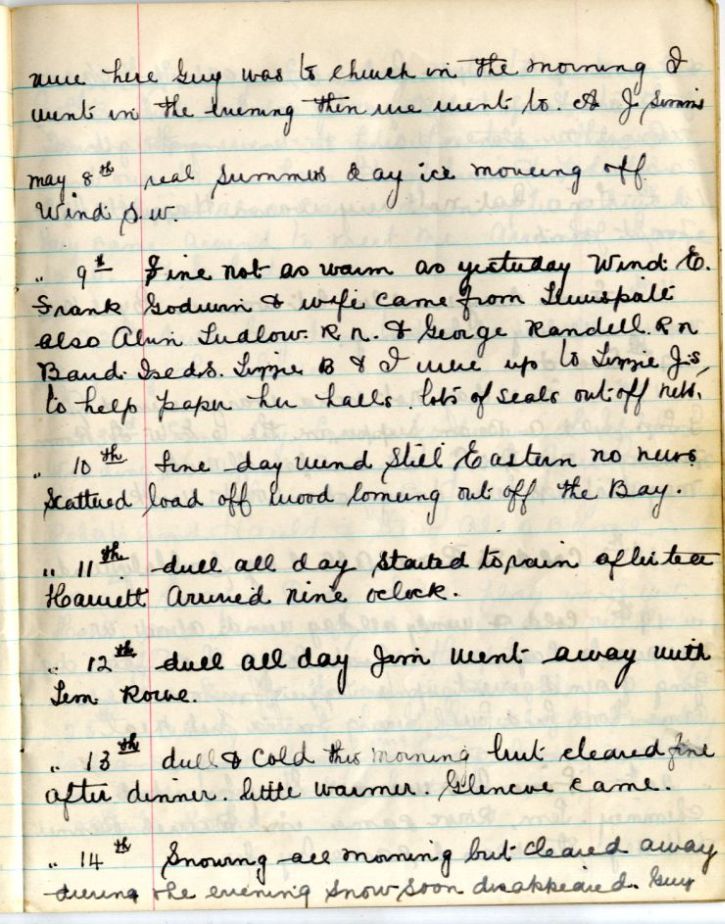 were here Guy was to church in the morning I
went in the evening then we went to. A J Simms
may 8th real summers day ice moveing off
Wind S w.
" 9th Fine not as warm as yesterday Wind E.
Frank Godwin & wife came from
also Alvin Ludlow. R n. & George Randell. R n
Band. Iseds. Lizzie B & I were up to Lizzie J's,
to help paper her halls. lots of seals out off nets.
" 10th fine day wind Still Eastern no news
Scattered load off wood comeing out off the Bay.
" 11th dull all day started to rain after tea
Harriett Arrived nine oclock.
" 12th dull all day Jim went away with
Lem Rowe.
" 13th dull & Cold this morning but cleared fine
after dinner. little warmer. Glencoe came.
" 14th Snowing all morning but Cleared away
during the evening Snow soon disappeared. Guy